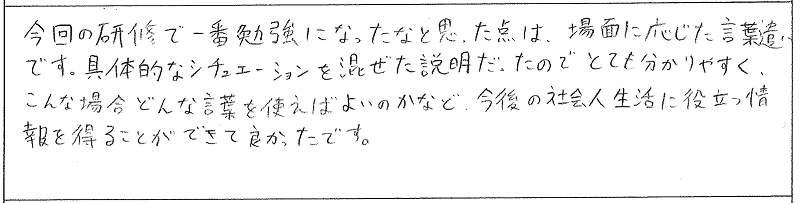 今回の研修で一番勉強になったなと思った点は、場面に応じた言葉遣い
です。具体的なシチュエーションを混ぜた説明だったのでとても分かりやすく、
こんな場合どんな言葉を使えばよいのかなど、今後の社会人生活に役立つ情
報を得ることができて良かったです。